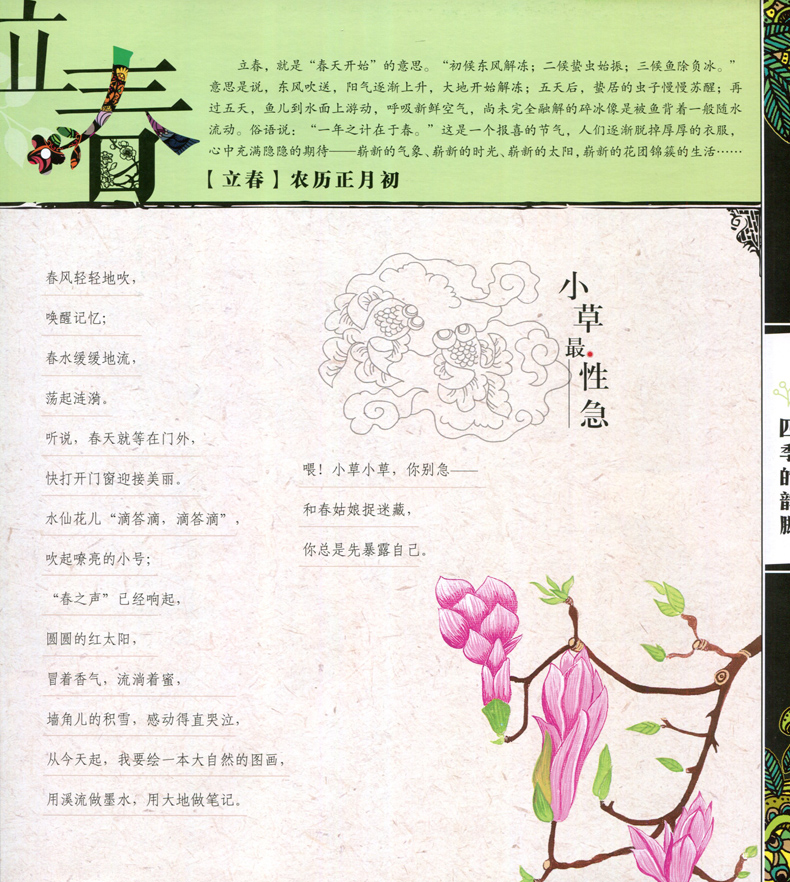 立春
立春，就是“春天开始”的意思。“初候东风解冻；二候蛰虫始振；三候鱼陟负冰。”
意思是说，东风吹送，阳气逐渐上升，大地开始解冻；五天后，蛰居的虫子慢慢苏醒；再
过五天，鱼儿到水面上游动，呼吸新鲜空气，尚未完全融解的碎冰像是被鱼背着一般随水
流动。俗语说：“一年之计在于春。”这是一个报喜的节气，人们逐渐脱掉厚厚的衣服，
心中充满隐隐的期待——崭新的气象、崭新的时光、崭新的太阳，崭新的花团锦簇的生活……
【立春】农历正月初
小草最性急
春风轻轻地吹，
唤醒记忆；
春水缓缓地流，
荡起涟漪。
听说，春天就等在门外，
快打开门窗迎接美丽。
水仙花儿“滴答滴，滴答滴”，
吹起嘹亮的小号；
“春之声”已经响起，
圆圆的红太阳，
冒着香气，流淌着蜜，
墙角儿的积雪，感动得直哭泣，
从今天起，我要绘一本大自然的图画，
用溪流做墨水，用大地做笔记。
喂！小草小草，你别急——
和春姑娘捉迷藏，
你总是先暴露自己。
四季的韵脚